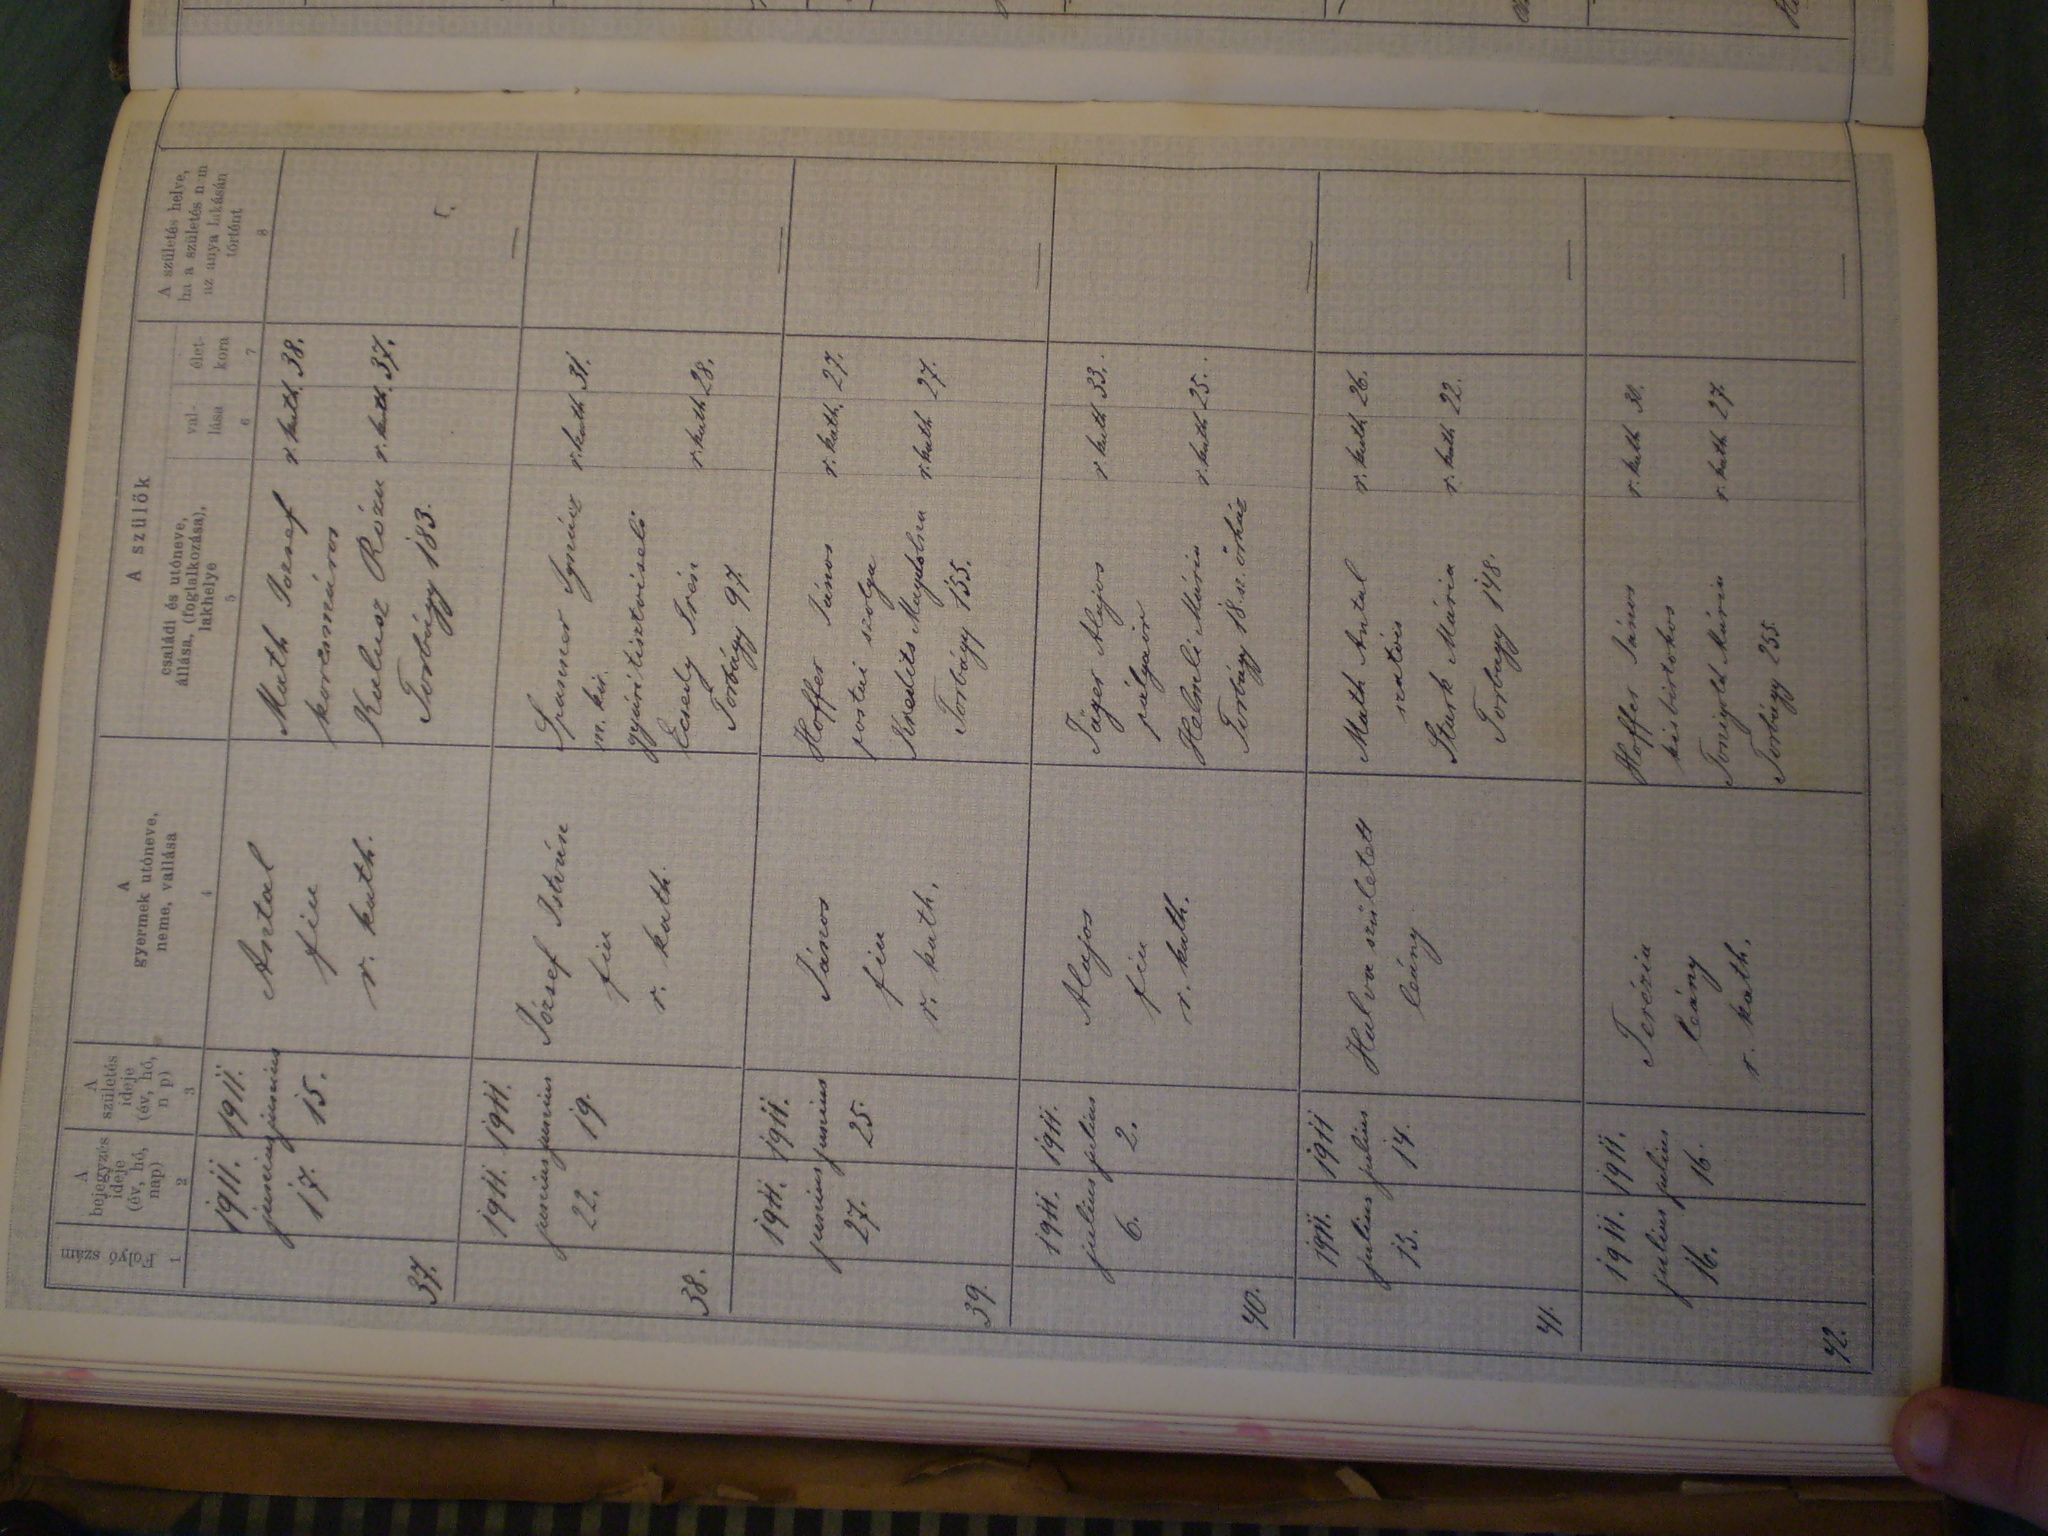 Folyó szám
1
A
bejegyzés
ideje
(év, hó,
nap)
2
A
születés
ideje
(év, hó,
n p)
3
A
gyermek utóneve,
neme, vallása
4
A szülők
családi és utóneve,
állása, (foglalkozása),
lakhelye
5
val-
lása
6
élet-
kora
7
A születés helye,
ha a születés n m
az anya lakásán
történt
8
37.
1911.
junius
17.
1911.
junius
15.
Antal
fiu
r. kath.
Math József r. kath. 38.
korcsmáros
Kalusz Róza r. kath. 37.
Torbágy 183.
38.
1911.
junius
22.
1911.
junius
19.
József István
fiu
r. kath.
Spanner Ignácz r. kath 31.
m. kir.
gyári tisztviselő
Ecsedy Irén r. kath 28.
Torbágy 97.
—
39.
1911.
junius
27.
1911.
junius
25.
János
fiu
r. kath.
Hoffer János r. kath. 27.
postai szolga
Magdolna r. kath 27.
Torbágy 155.
—
40.
1911.
julius
6.
1911.
julius
2.
Alajos
fiu
r. kath.
Jáger Alajos r. kath 33.
pályaőr
Helmli Mária r. kath 25.
Torbágy 18. sz. őrház
—
41.
1911.
julius
15.
1911
julius
14.
Halva született
leány
Math Antal r. kath 26.
szatócs
Stark Mária r. kath 22.
Torbágy 148.
—
42.
1911.
julius
16.
1911.
julius
16.
Terézia
leány
r. kath.
Hoffer János r. kath
kisbirtokos
Mária r. kath 27.
Torbágy 255
—